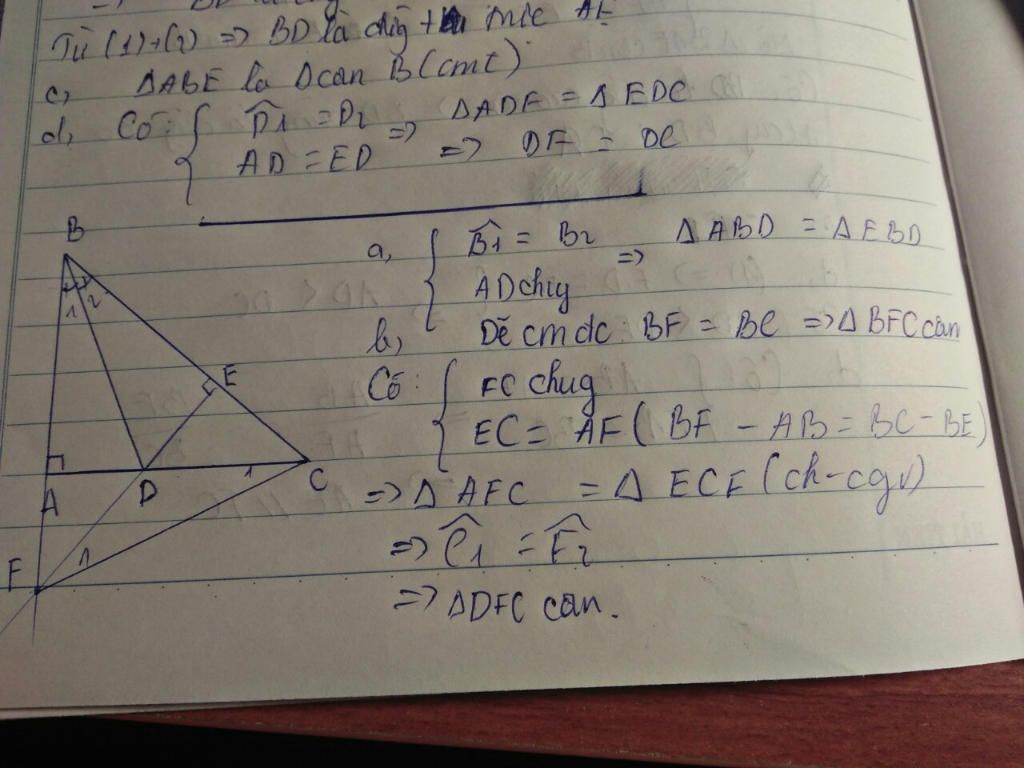 Từ (1)+(2) => BD là đg trực AE
c, ΔABE là Δcan B(cmt)
d, Có: { D̂1 = D2 => ΔADF = ΔEDC
AD = ED => DF = DC
a, { B̂1 = B2 => ΔABD = ΔEBD
AD chug
b, Dễ cm dc: BF = BC => ΔBFC can
Có: { FC chug
EC = AF (BF - AB = BC - BE)
=> Δ AFC = Δ ECF (ch-cgv)
=> Ĉ1 = F̂2
=> ΔDFC can.
B
1 2
E
A D 1 C
F 1